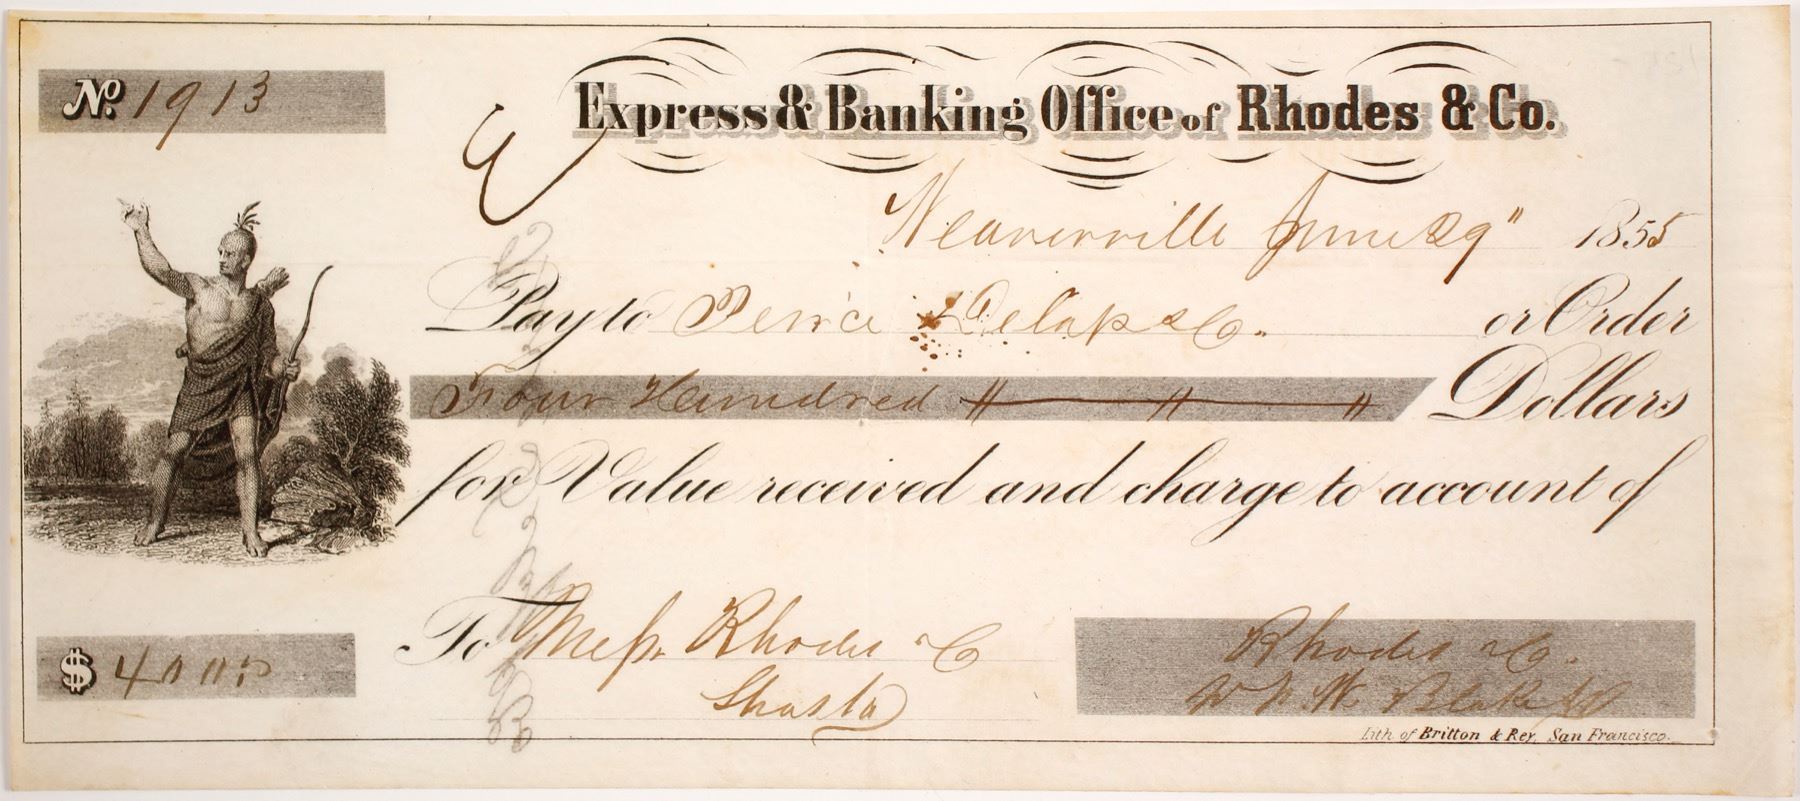 No. 1913
Express & Banking Office of Rhodes & Co.
Weaverville June 29" 1855
Pay to Peirce & Delap & Co. or Order
Four Hundred Dollars
for Value received and charge to account of
To Mess. Rhodes & Co
Shasta
$ 400 00
Rhodes & Co.
W. Blake
Lith of Britton & Rey, San Francisco.